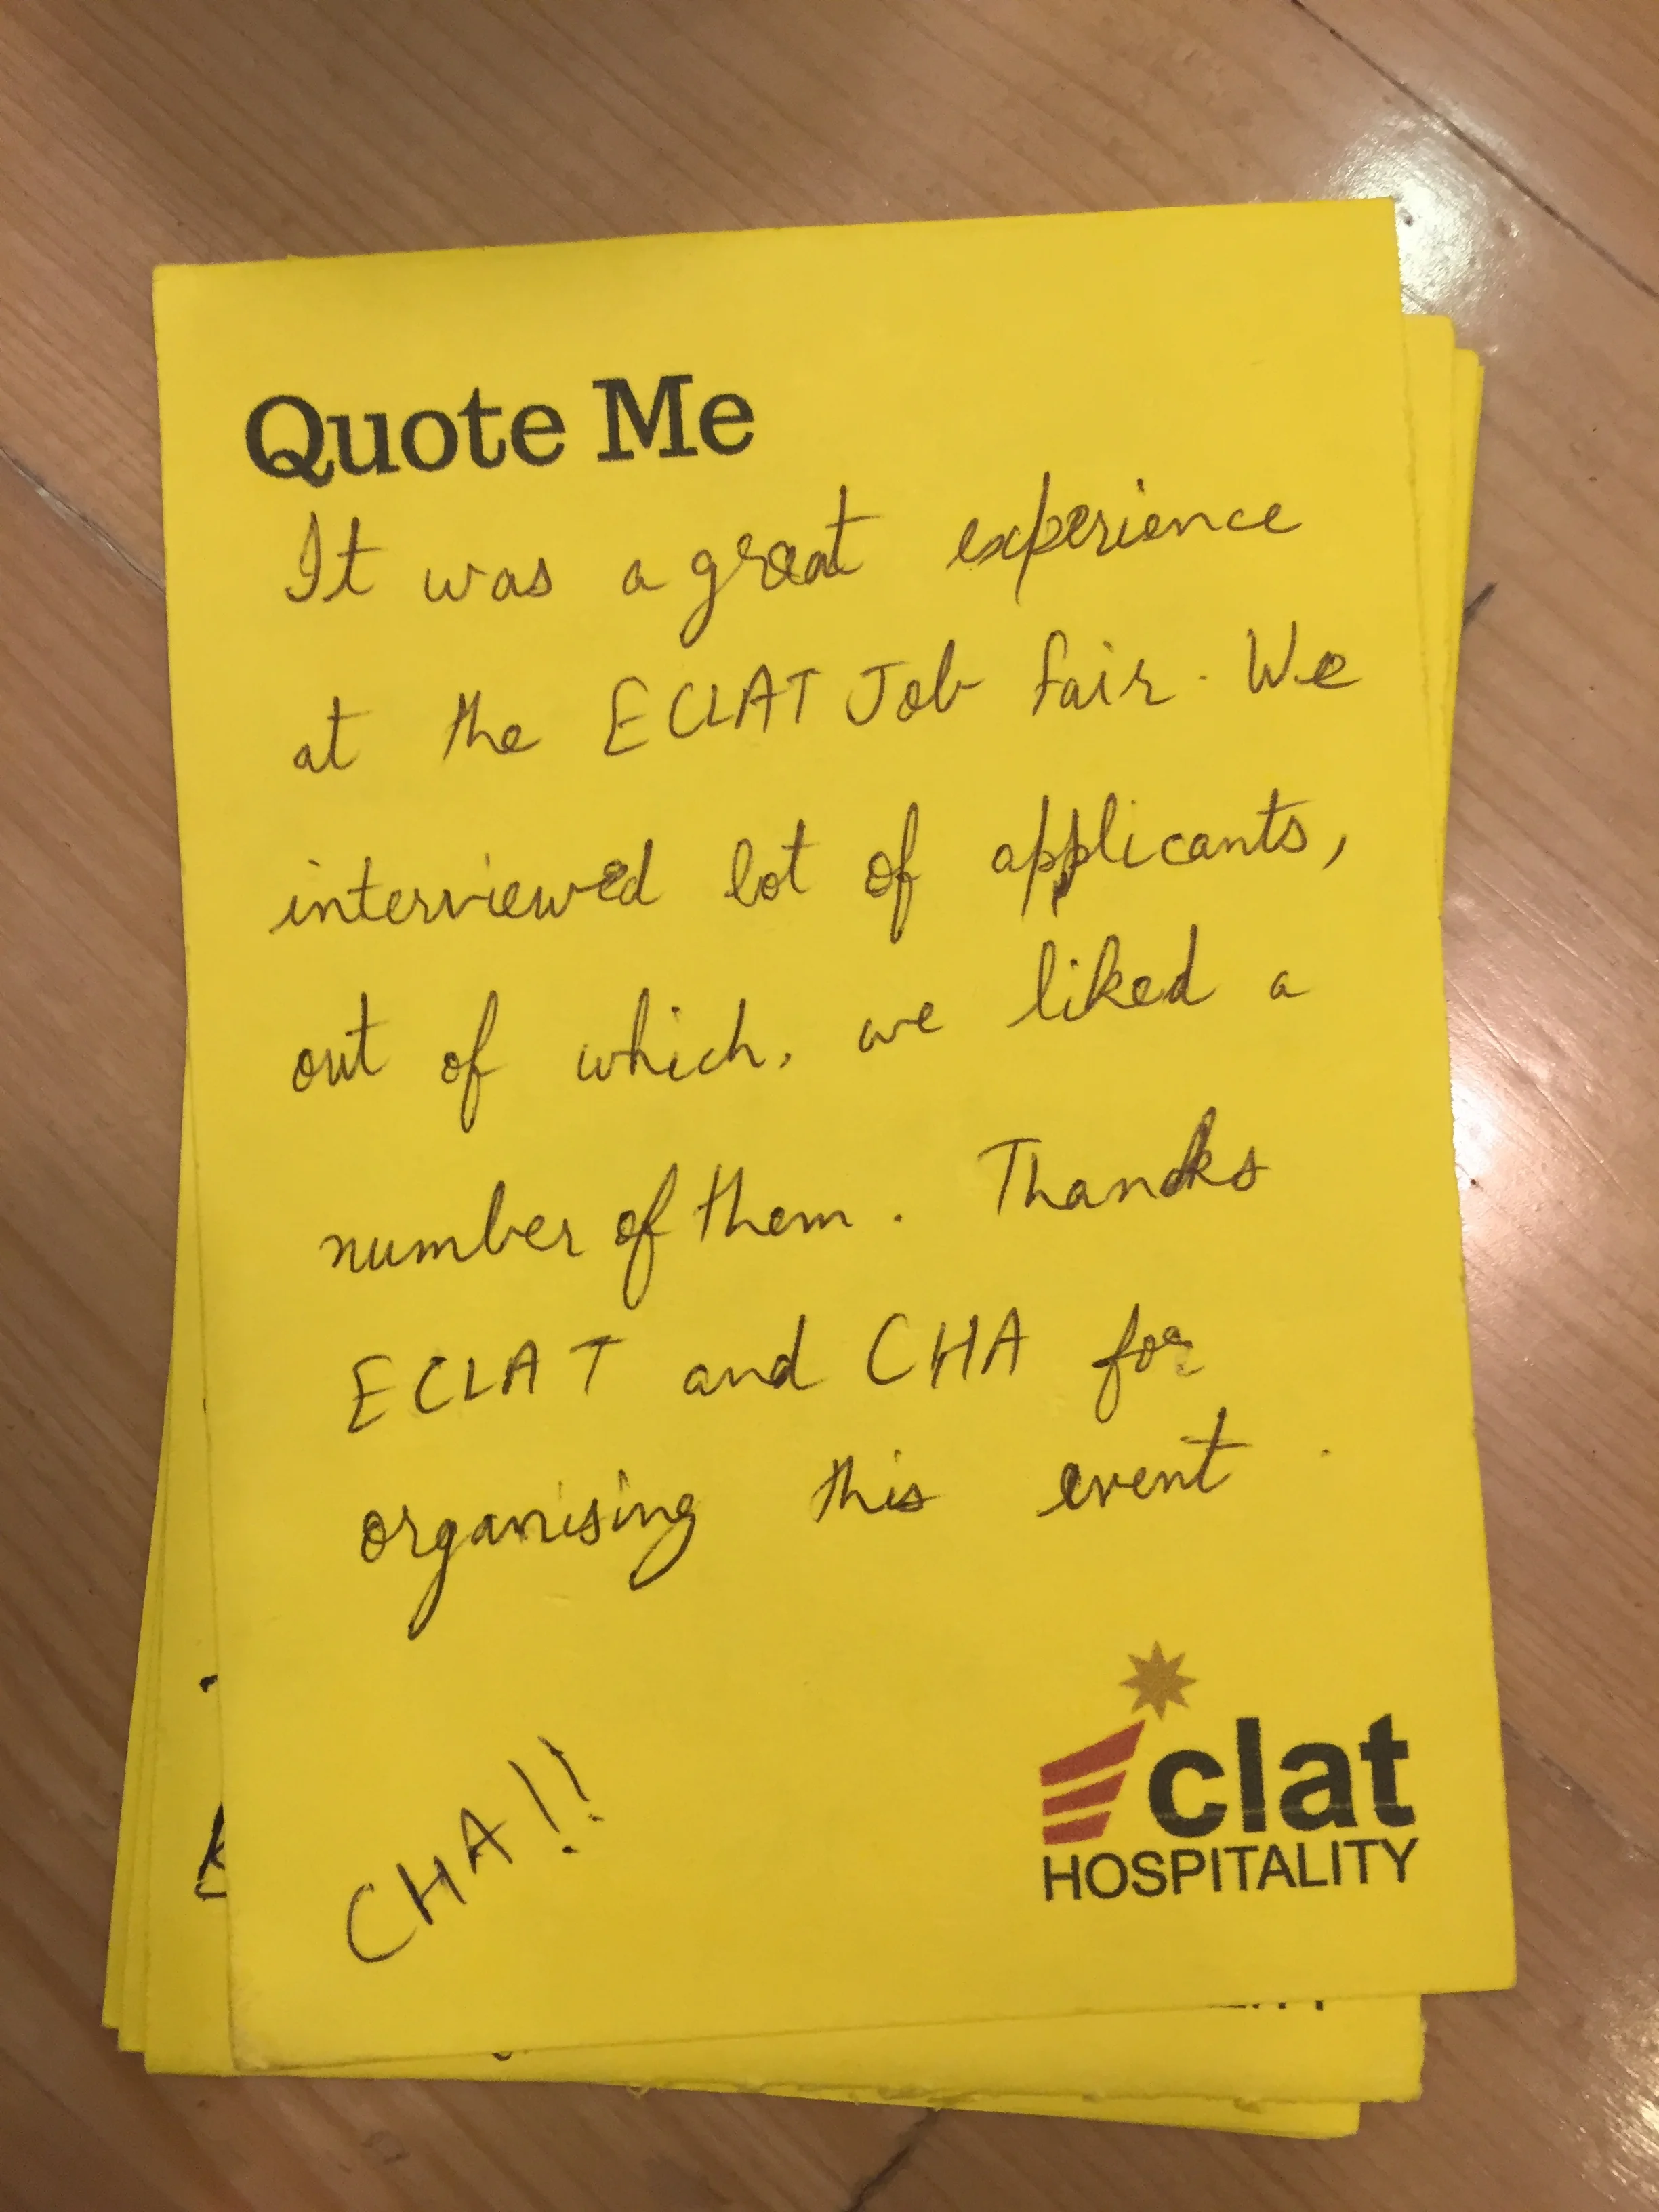 Quote Me
It was a great experience
at the ECLAT Job fair. We
interviewed lot of applicants,
out of which, we liked a
number of them. Thanks
ECLAT and CHA for
organising this event.
CHA!!
Eclat
HOSPITALITY